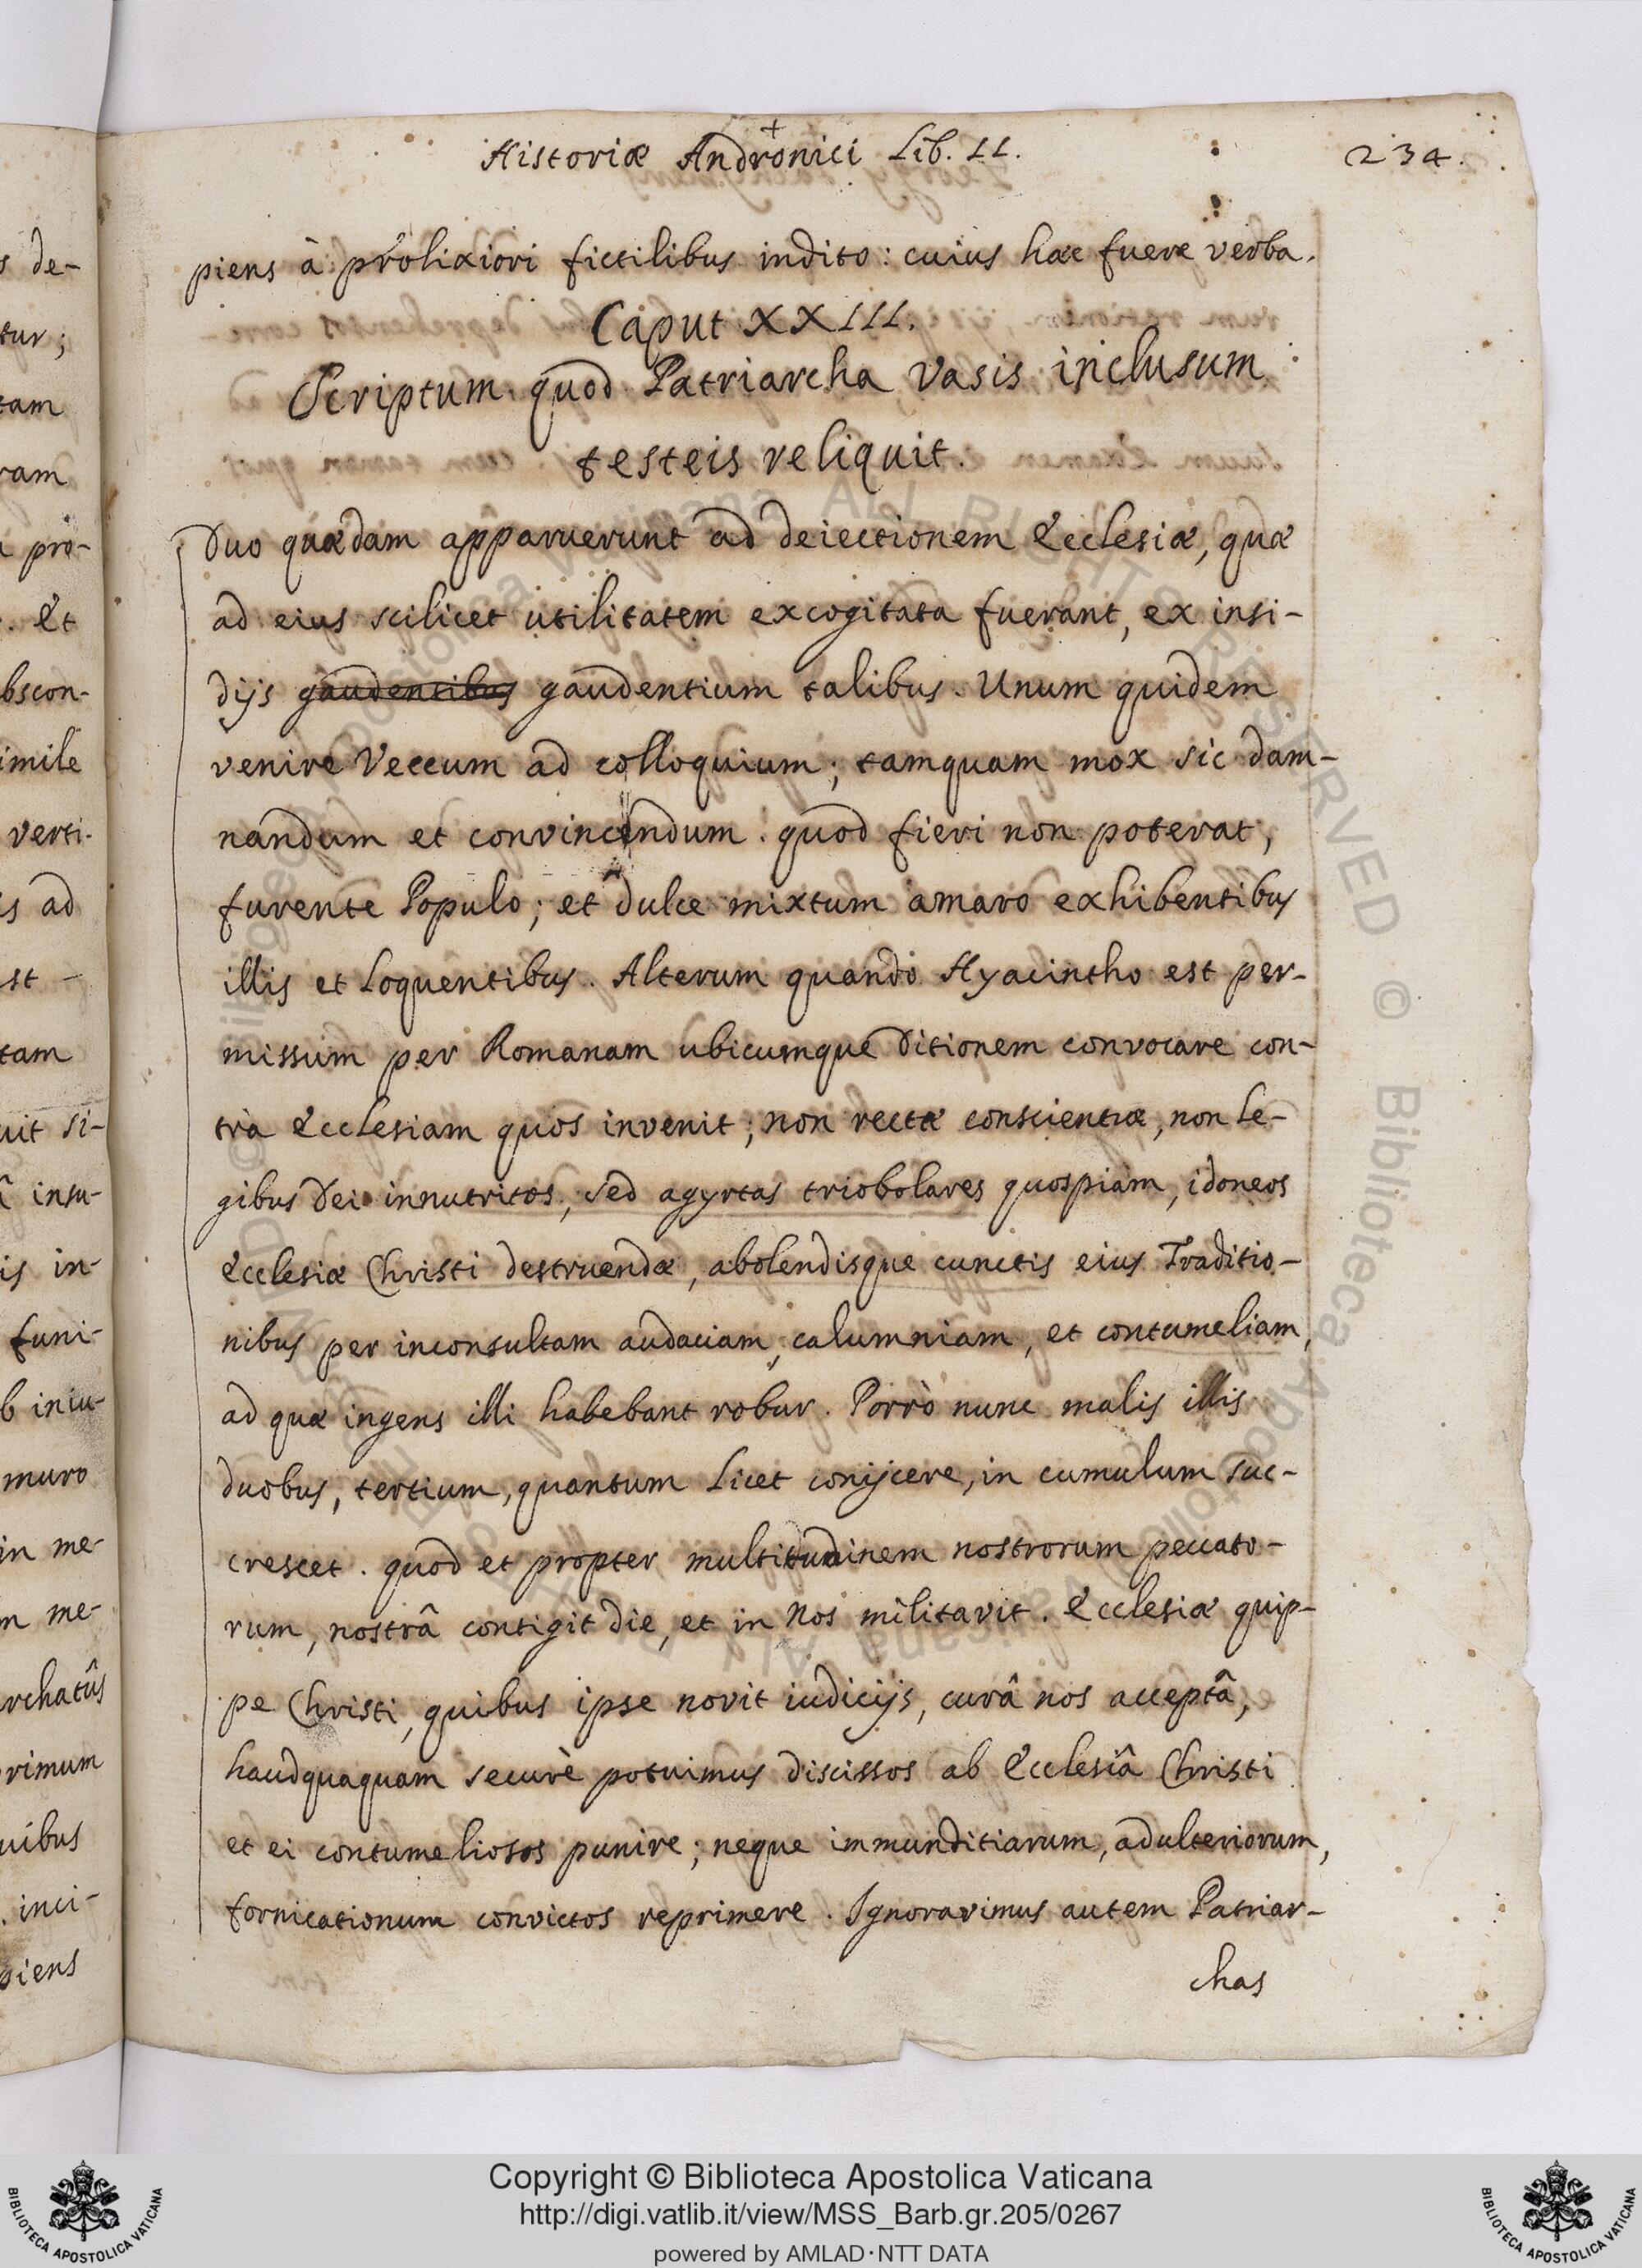 Historiæ Andronici Lib. II.
234.
piens à prolixiori fictilibus indito: cuius hæc fuere verba.
Caput XXIII.
Scriptum quod Patriarcha vasis inclusum
testeis reliquit.
Duo quædam apparuerunt ad deiectionem Ecclesiæ, quæ
ad eius scilicet utilitatem excogitata fuerant, ex insi-
dijs gaudentibus gaudentium talibus. Unum quidem
venire Veccum ad colloquium; tamquam mox sic dam-
nandum et convincendum. quod fieri non poterat,
furente Populo; et dulce mixtum amaro exhibentibus
illis et loquentibus. Alterum quando Hyacintho est per-
missum per Romanam ubicumque Ditionem convocare con-
tra Ecclesiam quos invenit; non rectæ conscientiæ, non le-
gibus Dei innutritos, sed agyrtas triobolares quospiam, idoneos
Ecclesiæ Christi destruendæ, abolendisque cunctis eius Traditio-
nibus per inconsultam audaciam, calumniam, et contumeliam,
ad quæ ingens illi habebant robur. Porrò nunc malis illis
duobus, tertium, quantum licet conijcere, in cumulum suc-
crescet. quod et propter multitudinem nostrorum peccato-
rum, nostrâ contigit die, et in Nos militavit. Ecclesiæ quip-
pe Christi, quibus ipse novit iudicijs, curâ nos acceptâ,
haudquaquam securè potuimus discissos ab Ecclesiâ Christi
et ei contumeliosos punire; neque immunditiarum, adulteriorum,
fornicationum convictos reprimere. Ignoravimus autem Patriar-
chas
s de-
tur;
tam
ram
pro-
. Et
bscon-
imile
verti-
s ad
st -
tam
uit si-
â insu-
is in-
funi-
b iniu-
muro
in me-
m me-
rchatûs
rimum
uibus
. inci-
piens
© Biblioteca Apostolica Vaticana ALL RIGHTS RESERVED
Copyright © Biblioteca Apostolica Vaticana
http://digi.vatlib.it/view/MSS_Barb.gr.205/0267
powered by AMLAD·NTT DATA
BIBLIOTECA APOSTOLICA VATICANA
BIBLIOTECA APOSTOLICA VATICANA